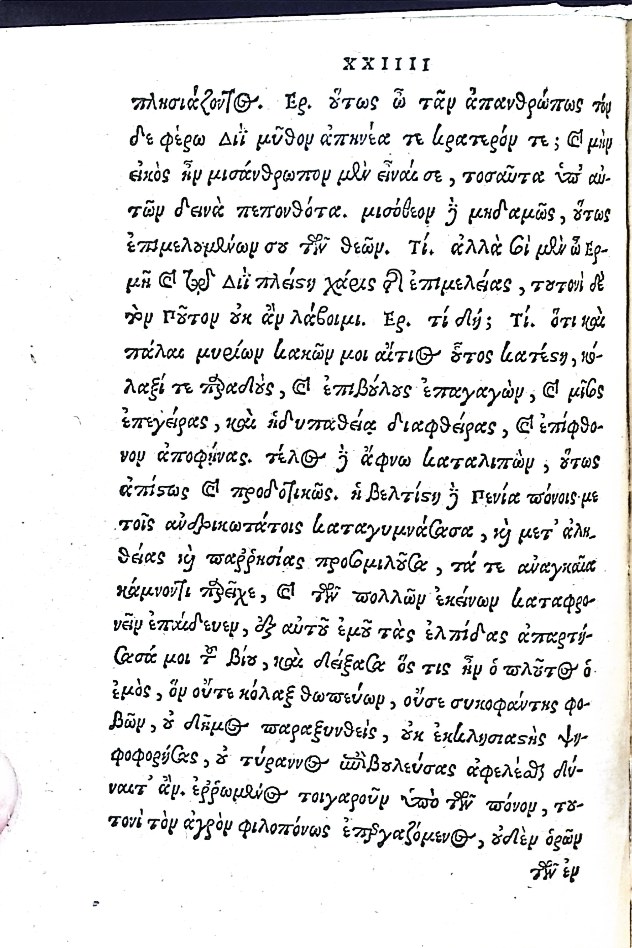 XXIIII
πλησιάζοντος. Ερ. οὕτως ὦ τᾶν ἀπανθρώπως τὸν
δε φέρω Διῒ μῦθον ἀπηνέα τε κρατερόν τε; καὶ μὴν
εἰκὸς ἦν μισάνθρωπον μὲν εἶναί σε, τοσαῦτα ὑπ' αὐ-
τῶν δεινὰ πεπονθότα. μισόθεον δὲ μηδαμῶς, οὕτως
ἐπιμελουμένων σου τῶν θεῶν. Τί. ἀλλὰ σοὶ μὲν ὦ Ερ-
μῆ καὶ τῷ Διῒ πλείστη χάρις τῆς ἐπιμελείας, τουτονὶ δὲ
τὸν Πλοῦτον οὐκ ἂν λάβοιμι. Ερ. τί δή; Τί. ὅτι καὶ
πάλαι μυρίων κακῶν μοι αἴτιος οὗτος κατέστη, κό-
λαξί τε παραδοὺς, καὶ ἐπιβούλους ἐπαγαγὼν, καὶ μῖσος
ἐπεγείρας, καὶ ἡδυπαθείᾳ διαφθείρας, καὶ ἐπίφθο-
νον ἀποφήνας. τέλος δὲ ἄφνω καταλιπὼν, οὕτως
ἀπίστως καὶ προδοτικῶς. ἡ βελτίστη δὲ Πενία πόνοις με
τοῖς ἀνδρικωτάτοις καταγυμνάσασα, καὶ μετ' ἀλη-
θείας καὶ παῤῥησίας προσομιλοῦσα, τά τε ἀναγκαῖα
κάμνοντι παρεῖχε, καὶ τῶν πολλῶν ἐκείνων καταφρο-
νεῖν ἐπαίδευεν, ἐξ αὐτοῦ ἐμοῦ τὰς ἐλπίδας ἀπαρτή-
σασά μοι τοῦ βίου, καὶ δείξασα ὅς τις ἦν ὁ πλοῦτος ὁ
ἐμὸς, ὃν οὔτε κόλαξ θωπεύων, οὔσε συκοφάντης φο-
βῶν, οὐ δῆμος παραξυνθεὶς, οὐκ ἐκκλησιαστὴς ψη-
φοφορήσας, οὐ τύραννος ἐπιβουλεύσας ἀφελέσθαι δύ-
ναιτ' ἄν. ἐῤῥωμένος τοιγαροῦν ὑπὸ τῶν πόνων, του-
τονὶ τὸν ἀγρὸν φιλοπόνως ἐπεργαζόμενος, οὐδὲν ὁρῶν
τῶν ἐν